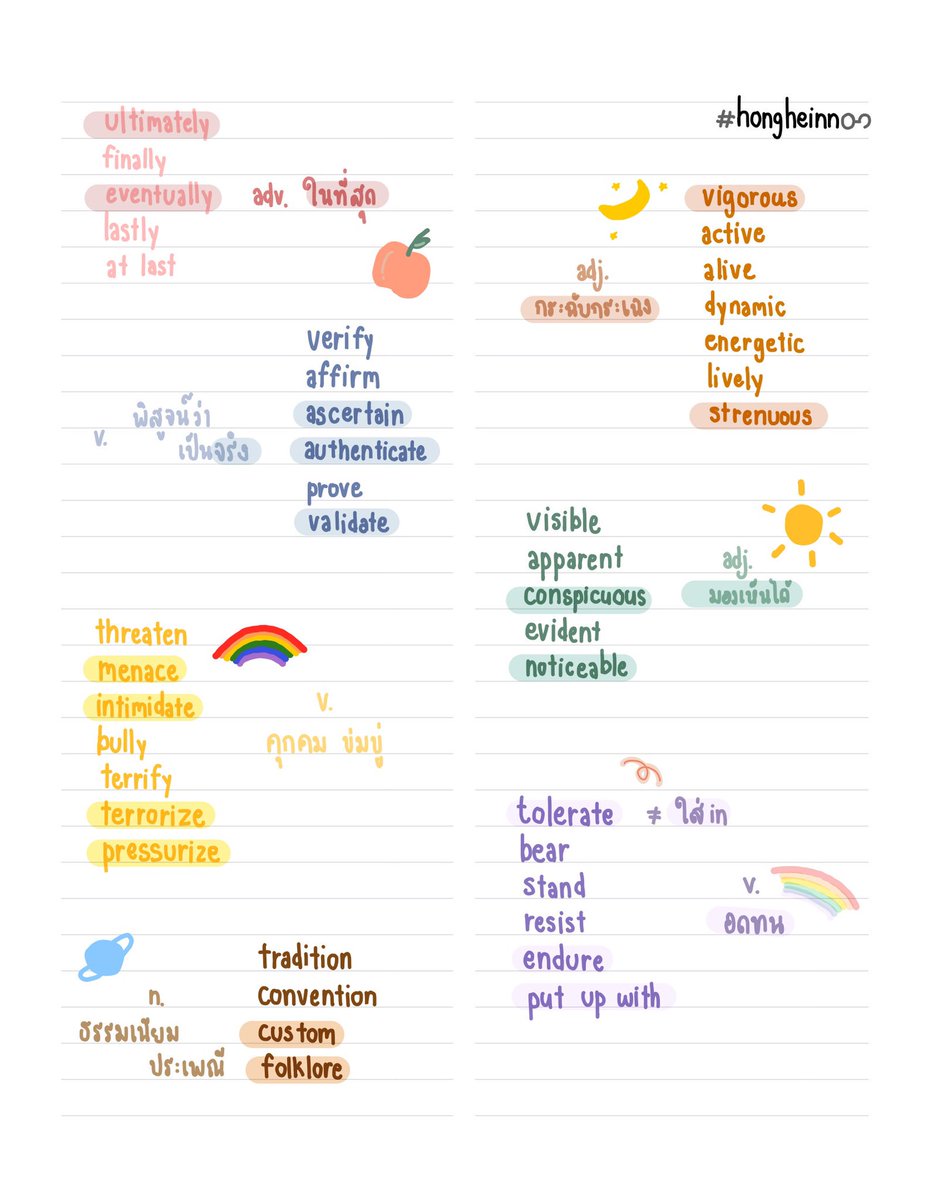 ultimately
finally
eventually adv. ในที่สุด
lastly
at last
verify
affirm
พิสูจน์ว่า ascertain
v. เป็นจริง authenticate
prove
validate
threaten
menace
intimidate v.
bully คุกคาม ข่มขู่
terrify
terrorize
pressurize
tradition
n. convention
ธรรมเนียม custom
ประเพณี folklore
#hongheinn
vigorous
active
adj. alive
กระฉับกระเฉง dynamic
energetic
lively
strenuous
visible
apparent adj.
conspicuous มองเห็นได้
evident
noticeable
tolerate ≠ ใส่ in
bear
stand v.
resist อดทน
endure
put up with